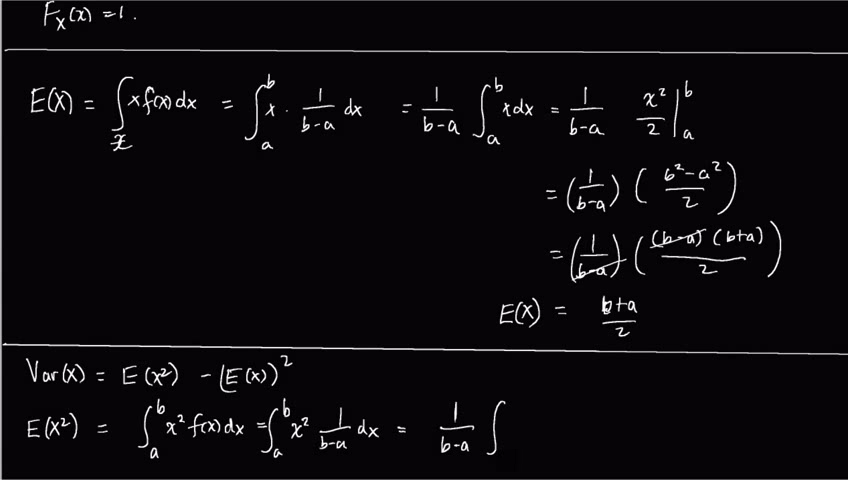 F_X(x) = 1.
E(X) = ∫_x x f(x) dx = ∫_a^b x · 1/(b-a) dx = 1/(b-a) ∫_a^b x dx = 1/(b-a) x²/2 |_a^b
= (1/(b-a)) ((b²-a²)/2)
= (1/(b-a)) ((b-a)(b+a)/2)
E(X) = (b+a)/2
Var(X) = E(X²) - (E(X))²
E(X²) = ∫_a^b x² f(x) dx = ∫_a^b x² 1/(b-a) dx = 1/(b-a) ∫